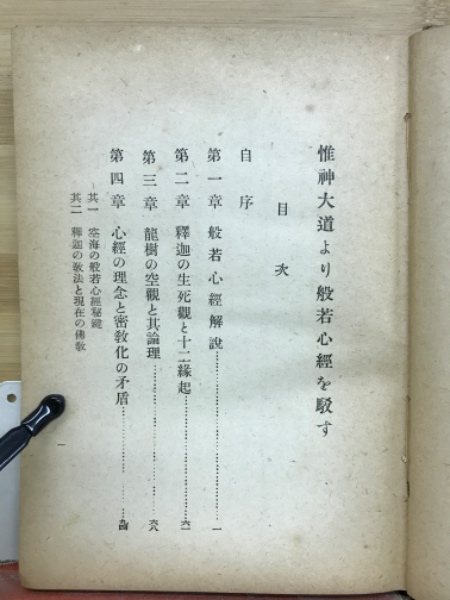 惟神大道より般若心經を駁す
目次
自序
第一章 般若心經解說…………一
第二章 釋迦の生死觀と十二緣起…………六一
第三章 龍樹の空觀と其論理…………六八
第四章 心經の理念と密敎化の矛盾…………九四
其一 空海の般若心經秘鍵
其二 釋迦の敎法と現在の佛敎
一